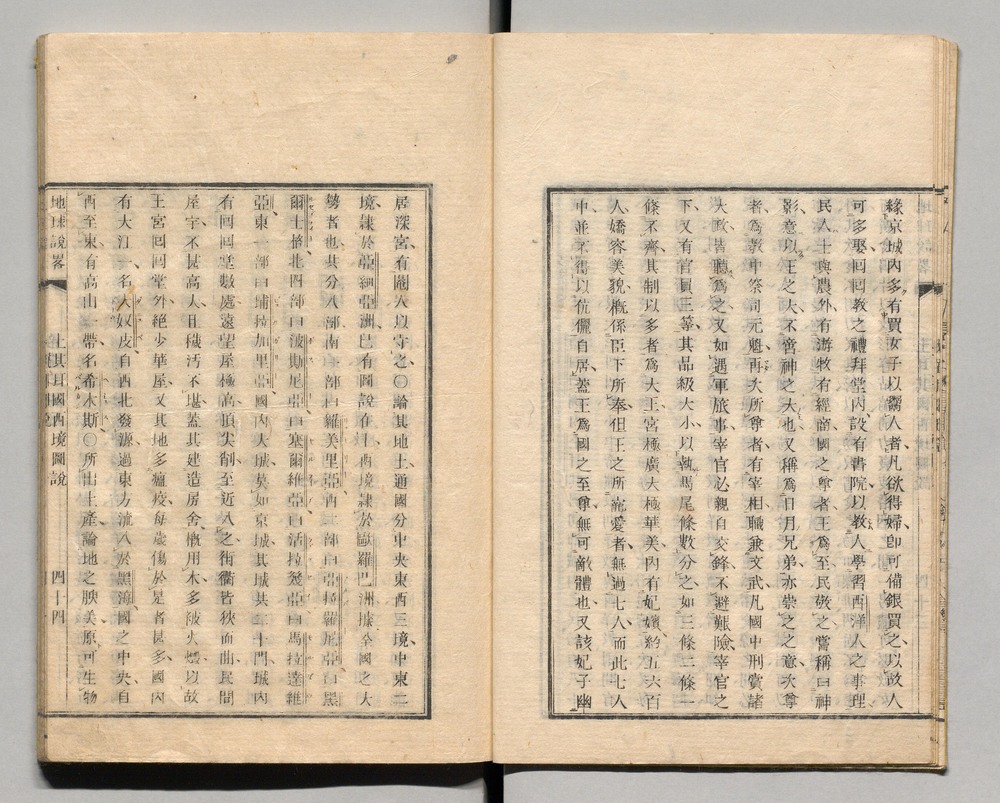 緣京城內多有買女子以鬻人者凡欲得婦卽可備銀買之以故人
可多娶回回教之禮拜堂內設有書院以教人學習西洋人之事理
民人士與農外有游牧有經商國之尊者王爲至民敬之嘗稱曰神
影意以王之大不啻神之大也又稱爲日月兄弟亦崇之之意次尊
者爲教中祭司元魁再次所尊者有宰相職兼文武凡國中刑賞諸
大政皆聽爲之又如遇軍旅事宰官必親自交鋒不避艱險宰官之
下又有官員三等其品級大小以執馬尾條數分之如三條二條一
條不齊其制以多者爲大王宮極廣大極華美內有妃嬪約五六百
人嬌容美貌概係臣下所奉但王之所寵愛者無過七人而此七人
中並不得以伉儷自居蓋王爲國之至尊無可敵體也又該妃子幽
居深宮有閹人以守之〇論其地土通國分中央東西三境中東二
境隷於亞細亞洲已有圖說在日西境隷於歐羅巴洲據全國之大
勢者也共分八部南一部曰羅美里亞西二部曰亞拉羅尼亞曰黑
爾士格北四部曰波斯尼亞曰塞爾維亞曰活拉幾亞曰馬拉達維
亞東一部曰補拉加里亞國內大城莫如京城其城共二十門城內
有回回堂數處遠望屋極高頂尖削至近入之街衢皆狹而曲民間
屋宇不甚高大且穢汚不堪蓋其建造房舍槪用木多被火燬以故
王宮回回堂外絕少華屋又其地多瘟疫每歲傷於是者甚多國內
有大江一名大奴皮自西北發源過東方流入於黑海國之中央自
西至東有高山一帶名希木斯〇所出土產論地之腴美原可生物
地球說畧
土其耳國西境圖說
四十四